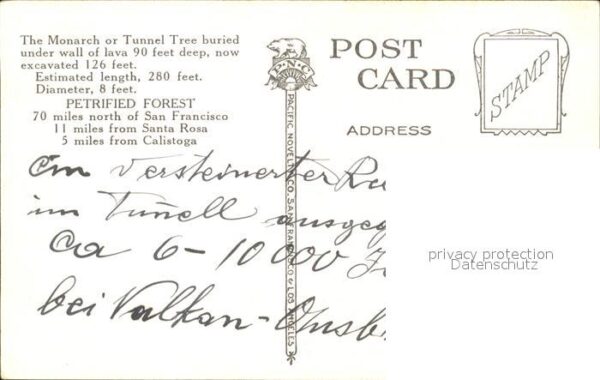 The Monarch or Tunnel Tree buried
under wall of lava 90 feet deep, now
excavated 126 feet.
Estimated length, 280 feet.
Diameter, 8 feet.
PETRIFIED FOREST
70 miles north of San Francisco
11 miles from Santa Rosa
5 miles from Calistoga
P.N.C
PACIFIC NOVELTY CO. SAN FRANCISCO & LOS ANGELES
POST
CARD
ADDRESS
STAMP
ein versteinerter
im Tunell ausgeg
ca 6-10000
bei Vulkan-
privacy protection
Datenschutz